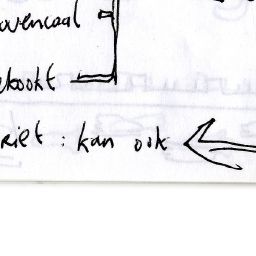 ovencaal
ebookt
riet : kan ook